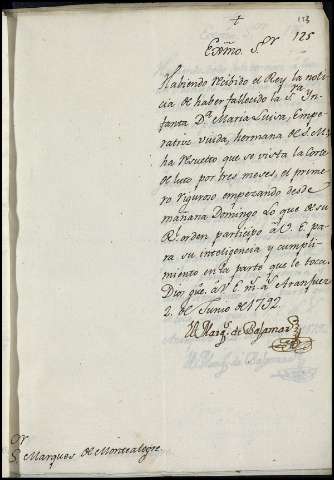 †
123
125
Exmo. Sor.
Habiendo recibido el Rey la noti-
cia de haber fallecido la Sra. Yn-
fanta Da. Maria Luisa, Empe-
ratriz viuda, hermana de S. M.
ha resuelto que se vista la Corte
de luto por tres meses, el prime-
ro riguroso empezando desde
mañana Domingo. Lo que de su
Rl. orden participo á V. E. pa-
ra su inteligencia y cumpli-
miento en la parte que le toca.
Dios gue. á V. E. ms. as. Aranjuez
2. de Junio de 1792.
El Marqs. de Bajamar
Sor. Marques de Montealegre.